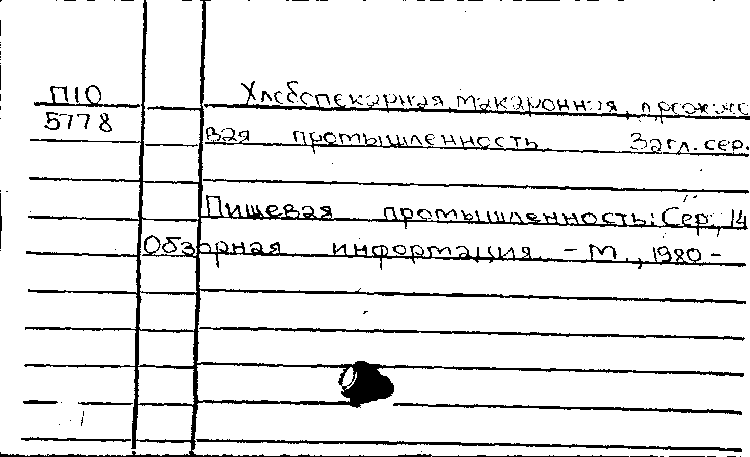 П10 Хлебопекарная, макаронная, дрожже
5778 вая промышленность Загл. сер.
Пищевая промышленность: Сер. 14
Обзорная информация. - М., 1980 -